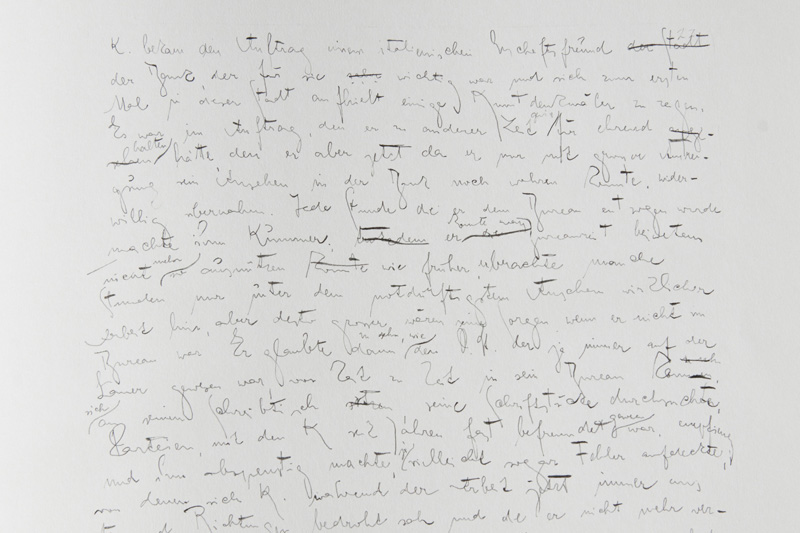 K. bekam den Auftrag einem italienischen Geschäftsfreund der Stadt
der Bank der für sie sehr wichtig war und sich zum ersten
Mal in dieser Stadt aufhielt einige Kunstdenkmäler zu zeigen.
Es war ein Auftrag, den er zu anderer Zeit gewiss für ehrend
halten hätte den er aber jetzt da er nur mit grosser Anstren-
gung sein Ansehen in der Bank noch wahren konnte, wider-
willig übernahm. Jede Stunde die er dem Bureau entzogen wurde
machte ihm Kummer. er konnte zwar die Bureauzeit bei weitem
nicht mehr so ausnützen wie früher, er brachte manche
Stunden nur unter dem notdürftigsten Anschein wirklicher
Arbeit hin, aber desto grösser waren seine Sorgen wenn er nicht im
Bureau war. Er glaubte dann zu sehn, wie der D. St. der ja immer auf der
Lauer gewesen war, von Zeit zu Zeit in sein Bureau kam,
sich an seinen Schreibtisch seine Schriftstücke durchsuchte,
Parteien, mit den K seit Jahren fast befreundet gewesen war, empfieng
und ihm abspenstig machte, vielleicht sogar Fehler aufdeckte,
von denen sich K während der Arbeit jetzt immer aus
Richtungen bedroht sah und die er nicht mehr ver-